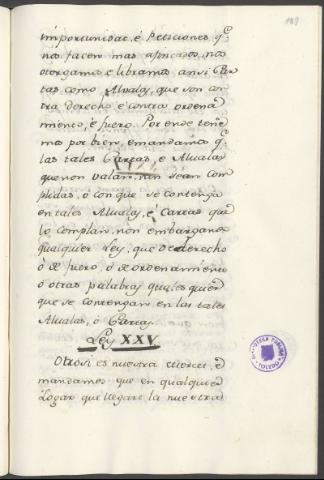 189
importunidat, é Peticiones q.e
nos facen mas afincadas, nos
otorgamos e libramos ansi Car
tas como Alvalas, que son con
tra derecho, é contra ordena
miento, é fuero. Por ende tene
mos por bien, e mandamos q.e
las tales Cartas, e Alvalas
que non valan, nin sean com
plidas, o con que se contenga
en tales Alvalas, é Cartas que
lo complan, non embargante
qualquier Ley, que de derecho
ó de fuero, ó de ordenamiento
ó otras palabras quales quier
que se contengan en las tales
Alvalas, ó Cartas
Ley XXV
Otrosi es nuestra merced, é
mandamos que en qualquier
Logar que llegare la nuestra
TOLEDO